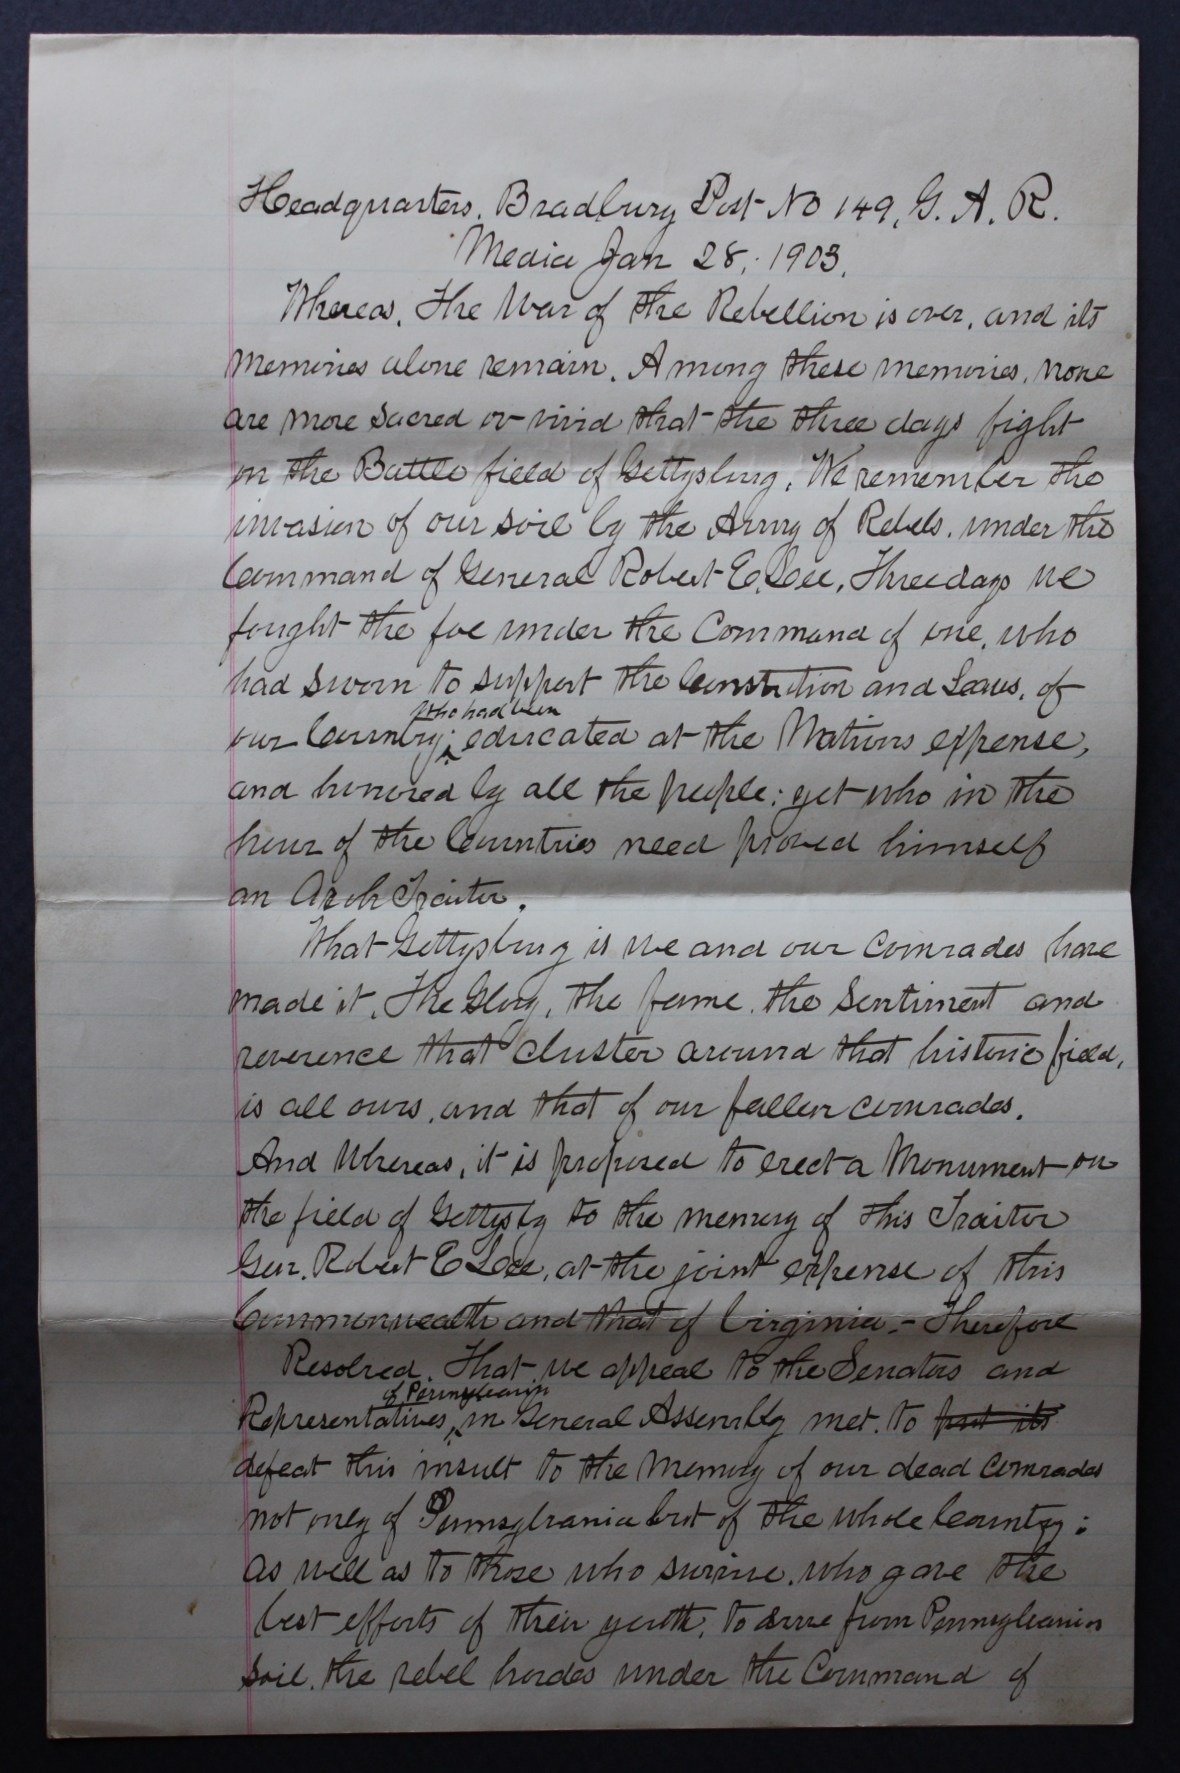 Headquarters. Bradbury Post No 149, G. A. R.
Media Jan 28, 1903.
Whereas, The War of the Rebellion is over, and its
memories alone remain. Among these memories, none
are more sacred or vivid that the three days fight
on the Battle field of Gettysburg. We remember the
invasion of our soil by the Army of Rebels, under the
Command of General Robert E. Lee, Three days we
fought the foe under the Command of one, who
had sworn to support the Constitution and Laws, of
who had been
our Country; educated at the Nations expense,
and honored by all the people; yet who in the
hour of the Countries need proved himself
an Arch Traitor.
What Gettysburg is we and our comrades have
made it. The Glory, the fame, the sentiment and
reverence that cluster around that historic field,
is all ours, and that of our fallen comrades.
And Whereas, it is proposed to erect a Monument on
the field of Gettysbg to the memory of this Traitor
Gen. Robert E Lee, at the joint expense of this
Commonwealth and that of Virginia.- Therefore
Resolved. That we appeal to the Senators and
of Pennsylvania
Representatives, in General Assembly met. to put its
defeat this insult to the Memory of our dead comrades
not only of Pennsylvania but of the whole Country;
as well as to those who survive, who gave the
best efforts of their youth, to drive from Pennsylvania
soil, the rebel hordes under the Command of